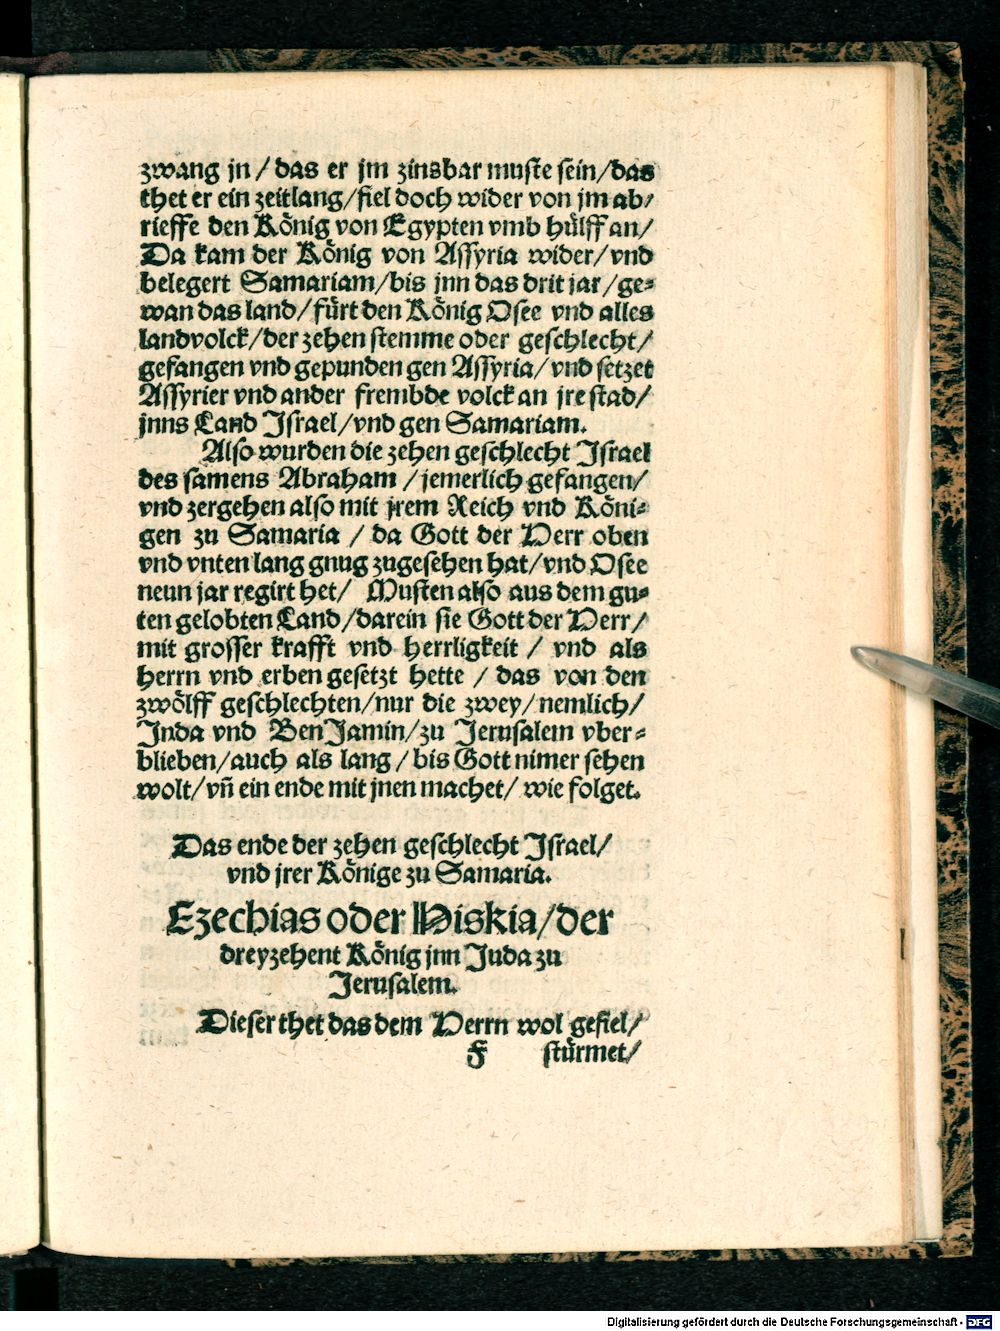 zwang jn / das er jm zinsbar muste sein/das
thet er ein zeitlang/fiel doch wider von jm ab/
rieffe den König von Egypten vmb hülff an/
Da kam der König von Assyria wider/vnd
belegert Samariam/bis jnn das drit jar/ge=
wan das land/fürt den König Osee vnd alles
landvolck/der zehen stemme oder geschlecht/
gefangen vnd gepunden gen Assyria/vnd setzet
Assyrier vnd ander frembde volck an jre stad/
jnns Land Israel/vnd gen Samariam.
Also wurden die zehen geschlecht Israel
des samens Abraham /jemerlich gefangen/
vnd zergehen also mit jrem Reich vnd Köni=
gen zu Samaria / da Gott der Herr oben
vnd vnten lang gnug zugesehen hat/vnd Osee
neun jar regirt het/ Musten also aus dem gu=
ten gelobten Land/darein sie Gott der Herr/
mit grosser krafft vnd herrligkeit / vnd als
herrn vnd erben gesetzt hette / das von den
zwölff geschlechten/nur die zwey/nemlich/
Juda vnd BenJamin/zu Jerusalem vber=
blieben/auch als lang /bis Gott nimer sehen
wolt/vñ ein ende mit jnen machet/ wie folget.
Das ende der zehen geschlecht Israel/
vnd jrer Könige zu Samaria.
Ezechias oder Hiskia/der
dreyzehent König jnn Juda zu
Jerusalem.
Dieser thet das dem Herrn wol gefiel/
F stürmet/
Digitalisierung gefördert durch die Deutsche Forschungsgemeinschaft - DFG